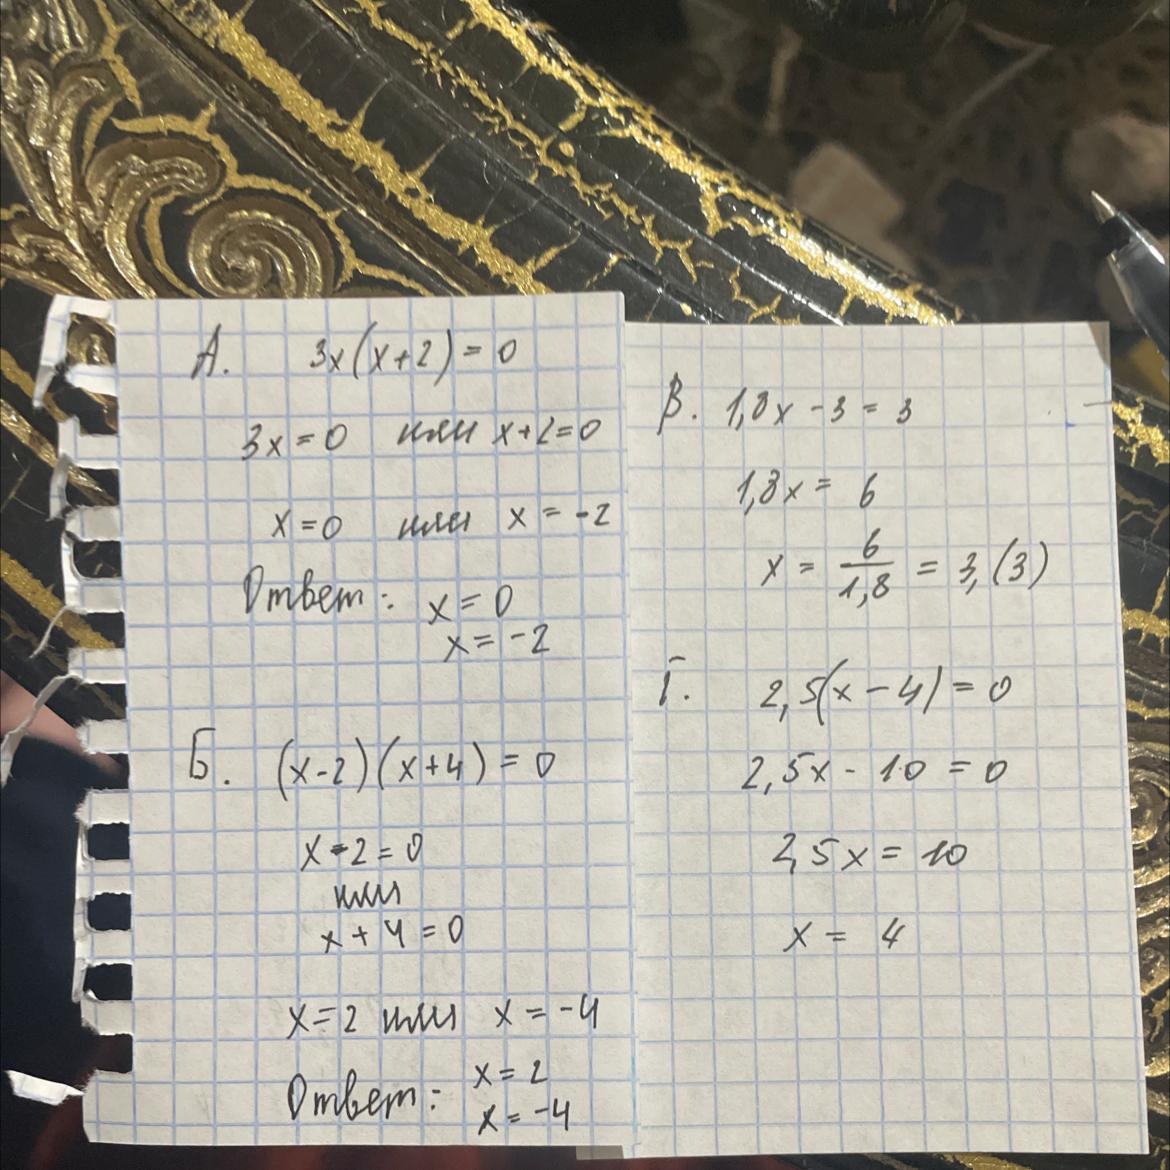 А. 3x(x+2) = 0
3x = 0 или x+2=0
x = 0 или x = -2
Ответ: x = 0
x = -2
Б. (x-2)(x+4) = 0
x-2=0
или
x+4=0
x=2 или x = -4
Ответ: x = 2
x = -4
В. 1,8x - 3 = 3
1,8x = 6
x = 6/1,8 = 3,(3)
Г. 2,5(x-4) = 0
2,5x - 10 = 0
2,5x = 10
x = 4